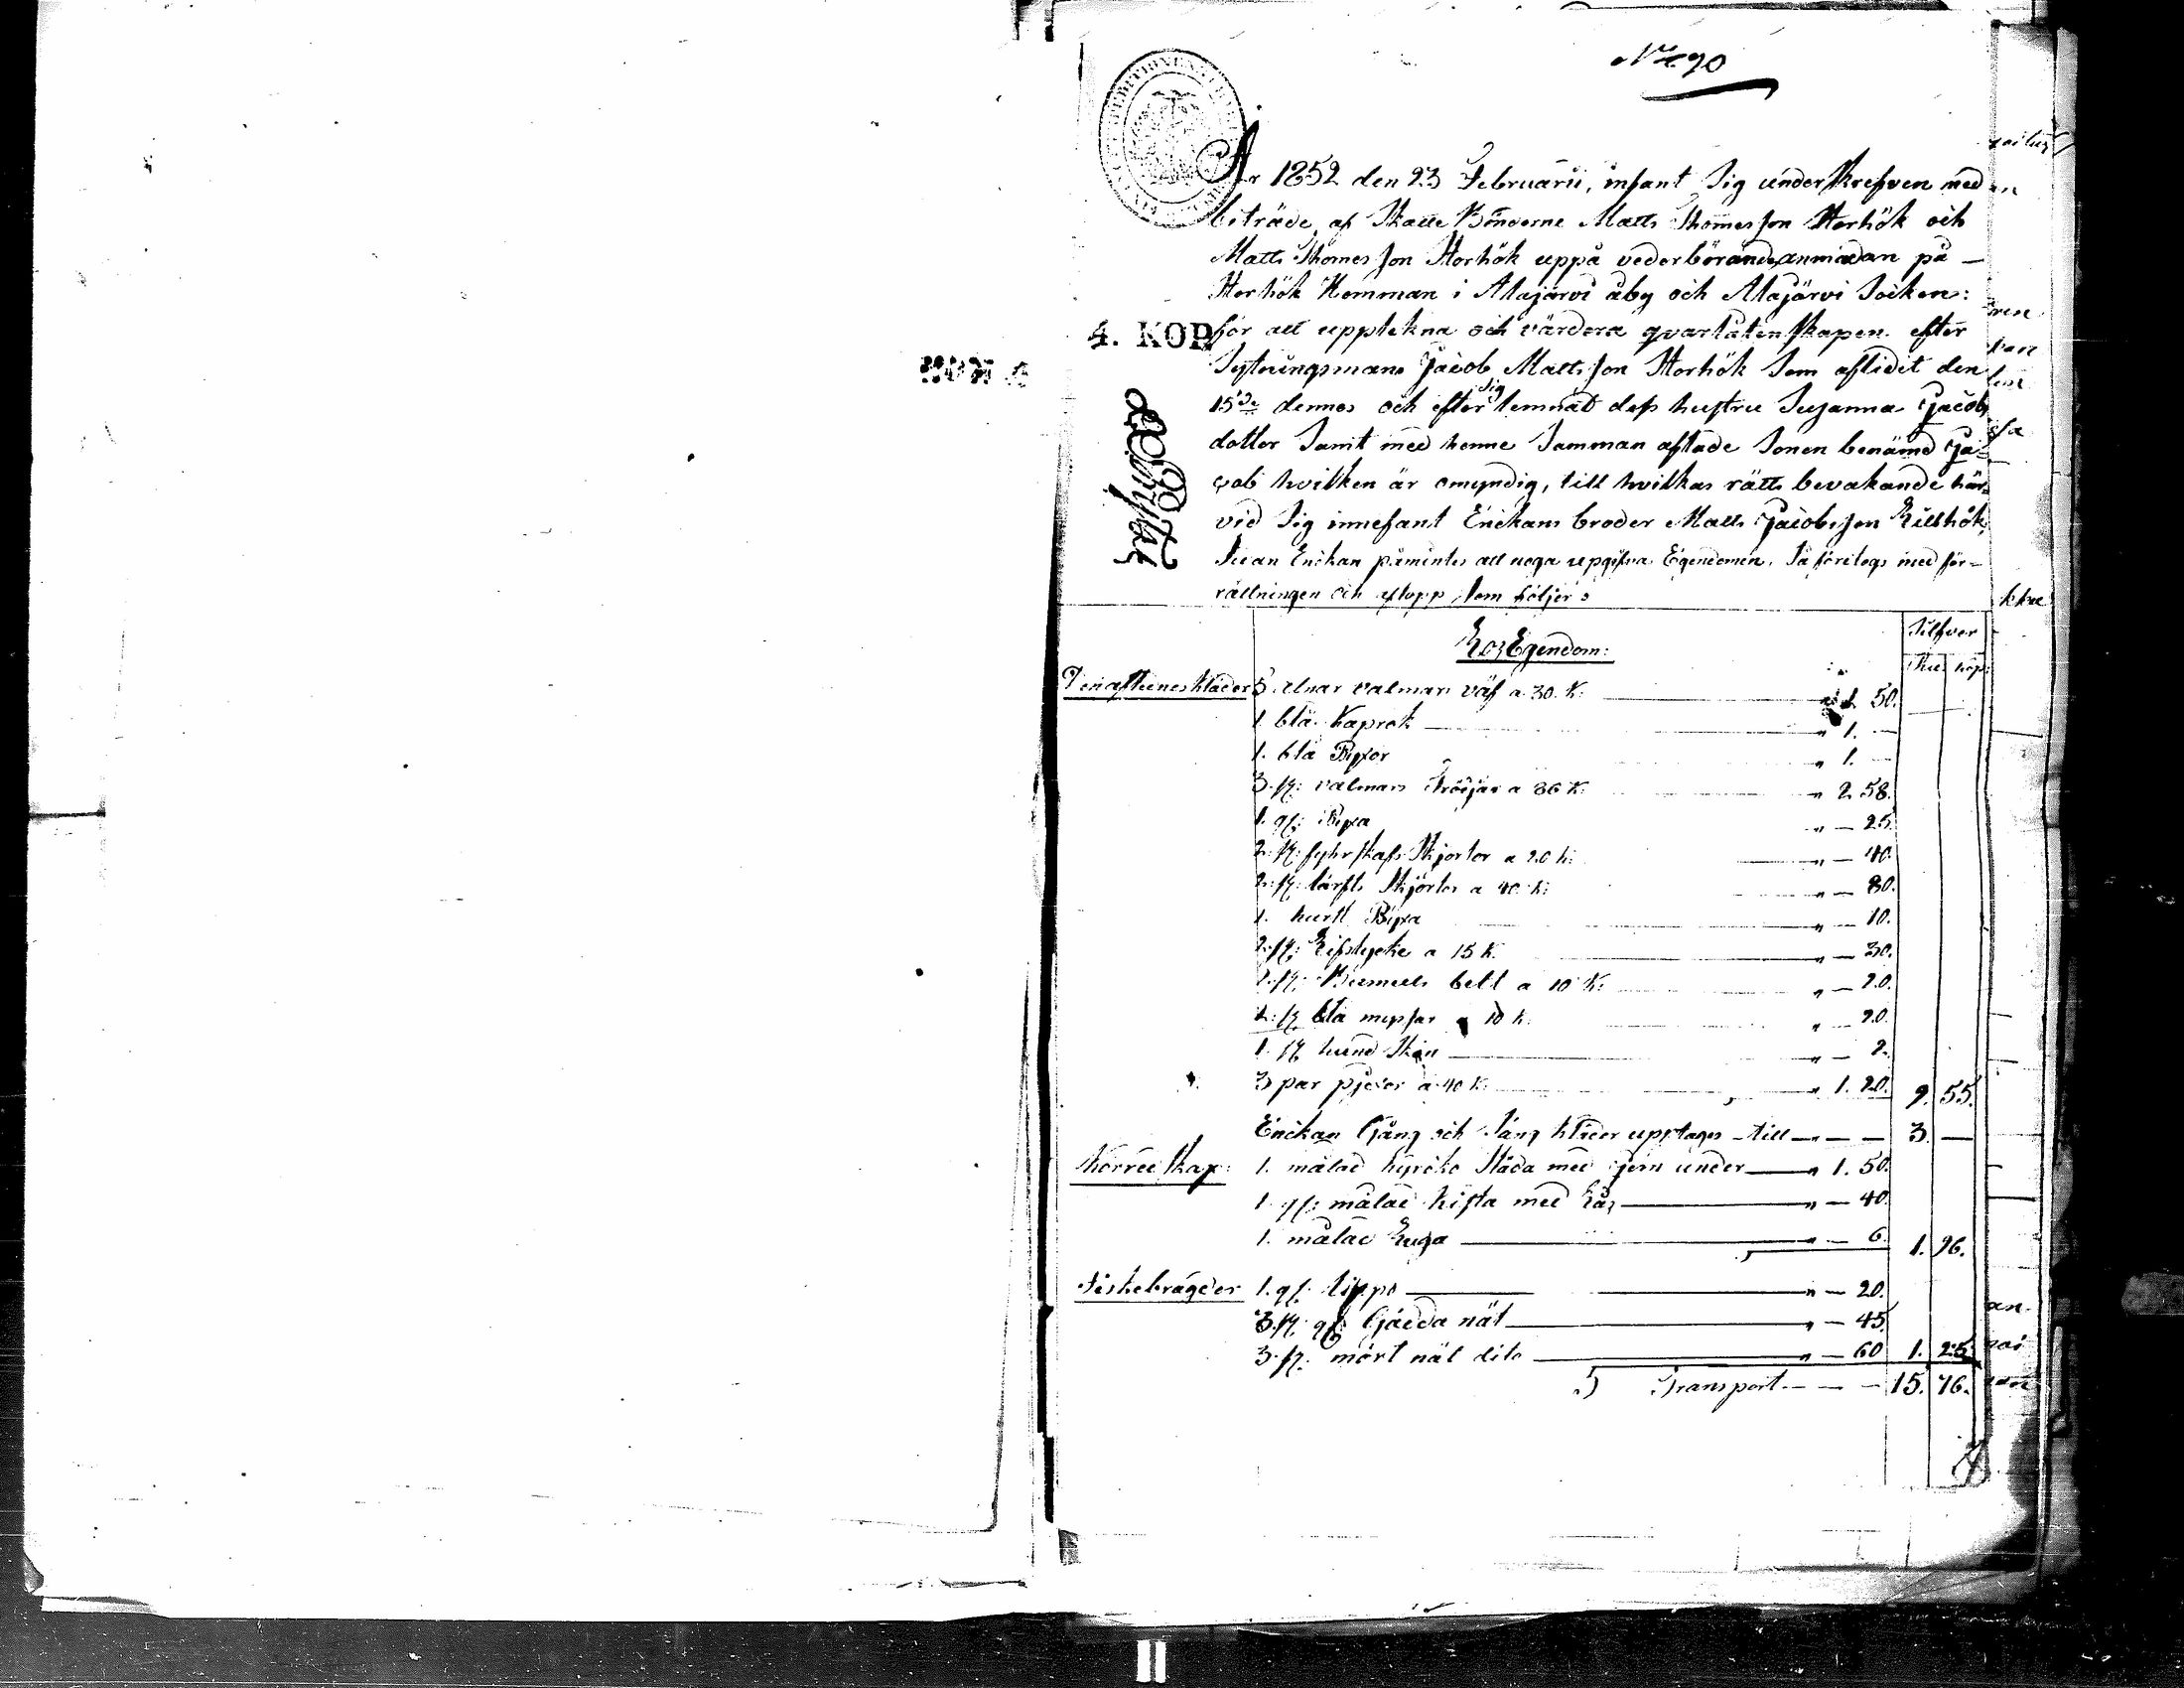 No 90
År 1852 den 23 Februarii, infant Sig underskrefven med
biträde af Skatte Bönderne Matts Thomesson Storhök och
Matts Thomesson Storhök uppå vederbörandes anmodan på
Storhök Hemman i Alajärvi åby och Alajärvi Socken:
4. KOP.
för att upptekna och värdera qvarlåtenskapen efter
Sytningsman Jacob Mattsson Storhök Som aflidit den
15de dennes och efter sig lemnat dess hustru Susanna Jacobs
dotter Samt med henne Samman aflade Sonen benämd Ja-
cob hvilken är omyndig, till hvilkas rätts bevakande här-
vid Sig innefant Enckans broder Matts Jacobsson Lillhök,
Sedan Enckan påmintes att noga uppgifva Egendomen. Så företogs med för-
rättningen och uptopp Som följer:
Lös Egendom:
Silfver
Ru. kop:
Den aflidnes kläder 5. alnar valmars väf a 30. K. " 1. 50.
1. blå Kaprok " 1. —
1. blå Byxor " 1. —
3. st: valmars Tröijar a 86 K: " 2. 58.
1. gl: Byxa " — 25.
2. st: fyhrskafs Skjortor a 20 k: " — 40.
2. st: lärfts Skjortor a 40 k: " — 80.
1. Byxa " — 10.
2. st: Lifstycke a 15 K. " — 30.
2. st: Bumuls belt a 10 K: " — 20.
2. st. blå myssar a 10 k. " — 20.
1. st hund Skin " — 2.
3 par pjexor a 40 K. " 1. 20. 9. 55.
Enckan Gång och Säng kläder upptages till — — — 3. —
Körredskap: 1. målad kyrcko Släda med jern under " 1. 50.
1. gl: målad kista med Lås " — 40.
1. målad " — 6. 1. 96.
Fiskebragder 1. gl. lippo " — 20.
3. st. gl: Gädda nät " — 45.
3. st. mört nät dito " — 60 1. 25.
Transport — — — 15. 76.